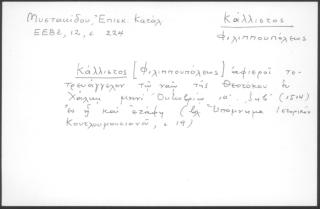 Μυστακίδου, Ἐπισκ. Κατάλ
ΕΕΒΣ, 12, σ 224
Κάλλιστος
Φιλιππουπόλεως
Κάλλιστος [Φιλιππουπόλεως] ἀφιεροῖ τε-
τρευάγγελον τῷ ναῷ τῆς Θεοτόκου ἐν
Χάλκῃ μηνὶ Ὀκτωβρίῳ (1514)
ἐν ᾗ καὶ ἐτάφη (βλ Ὑπόμνημα Ἱστορικὸν
Κουτλουμουσιανοῦ, σ 19)